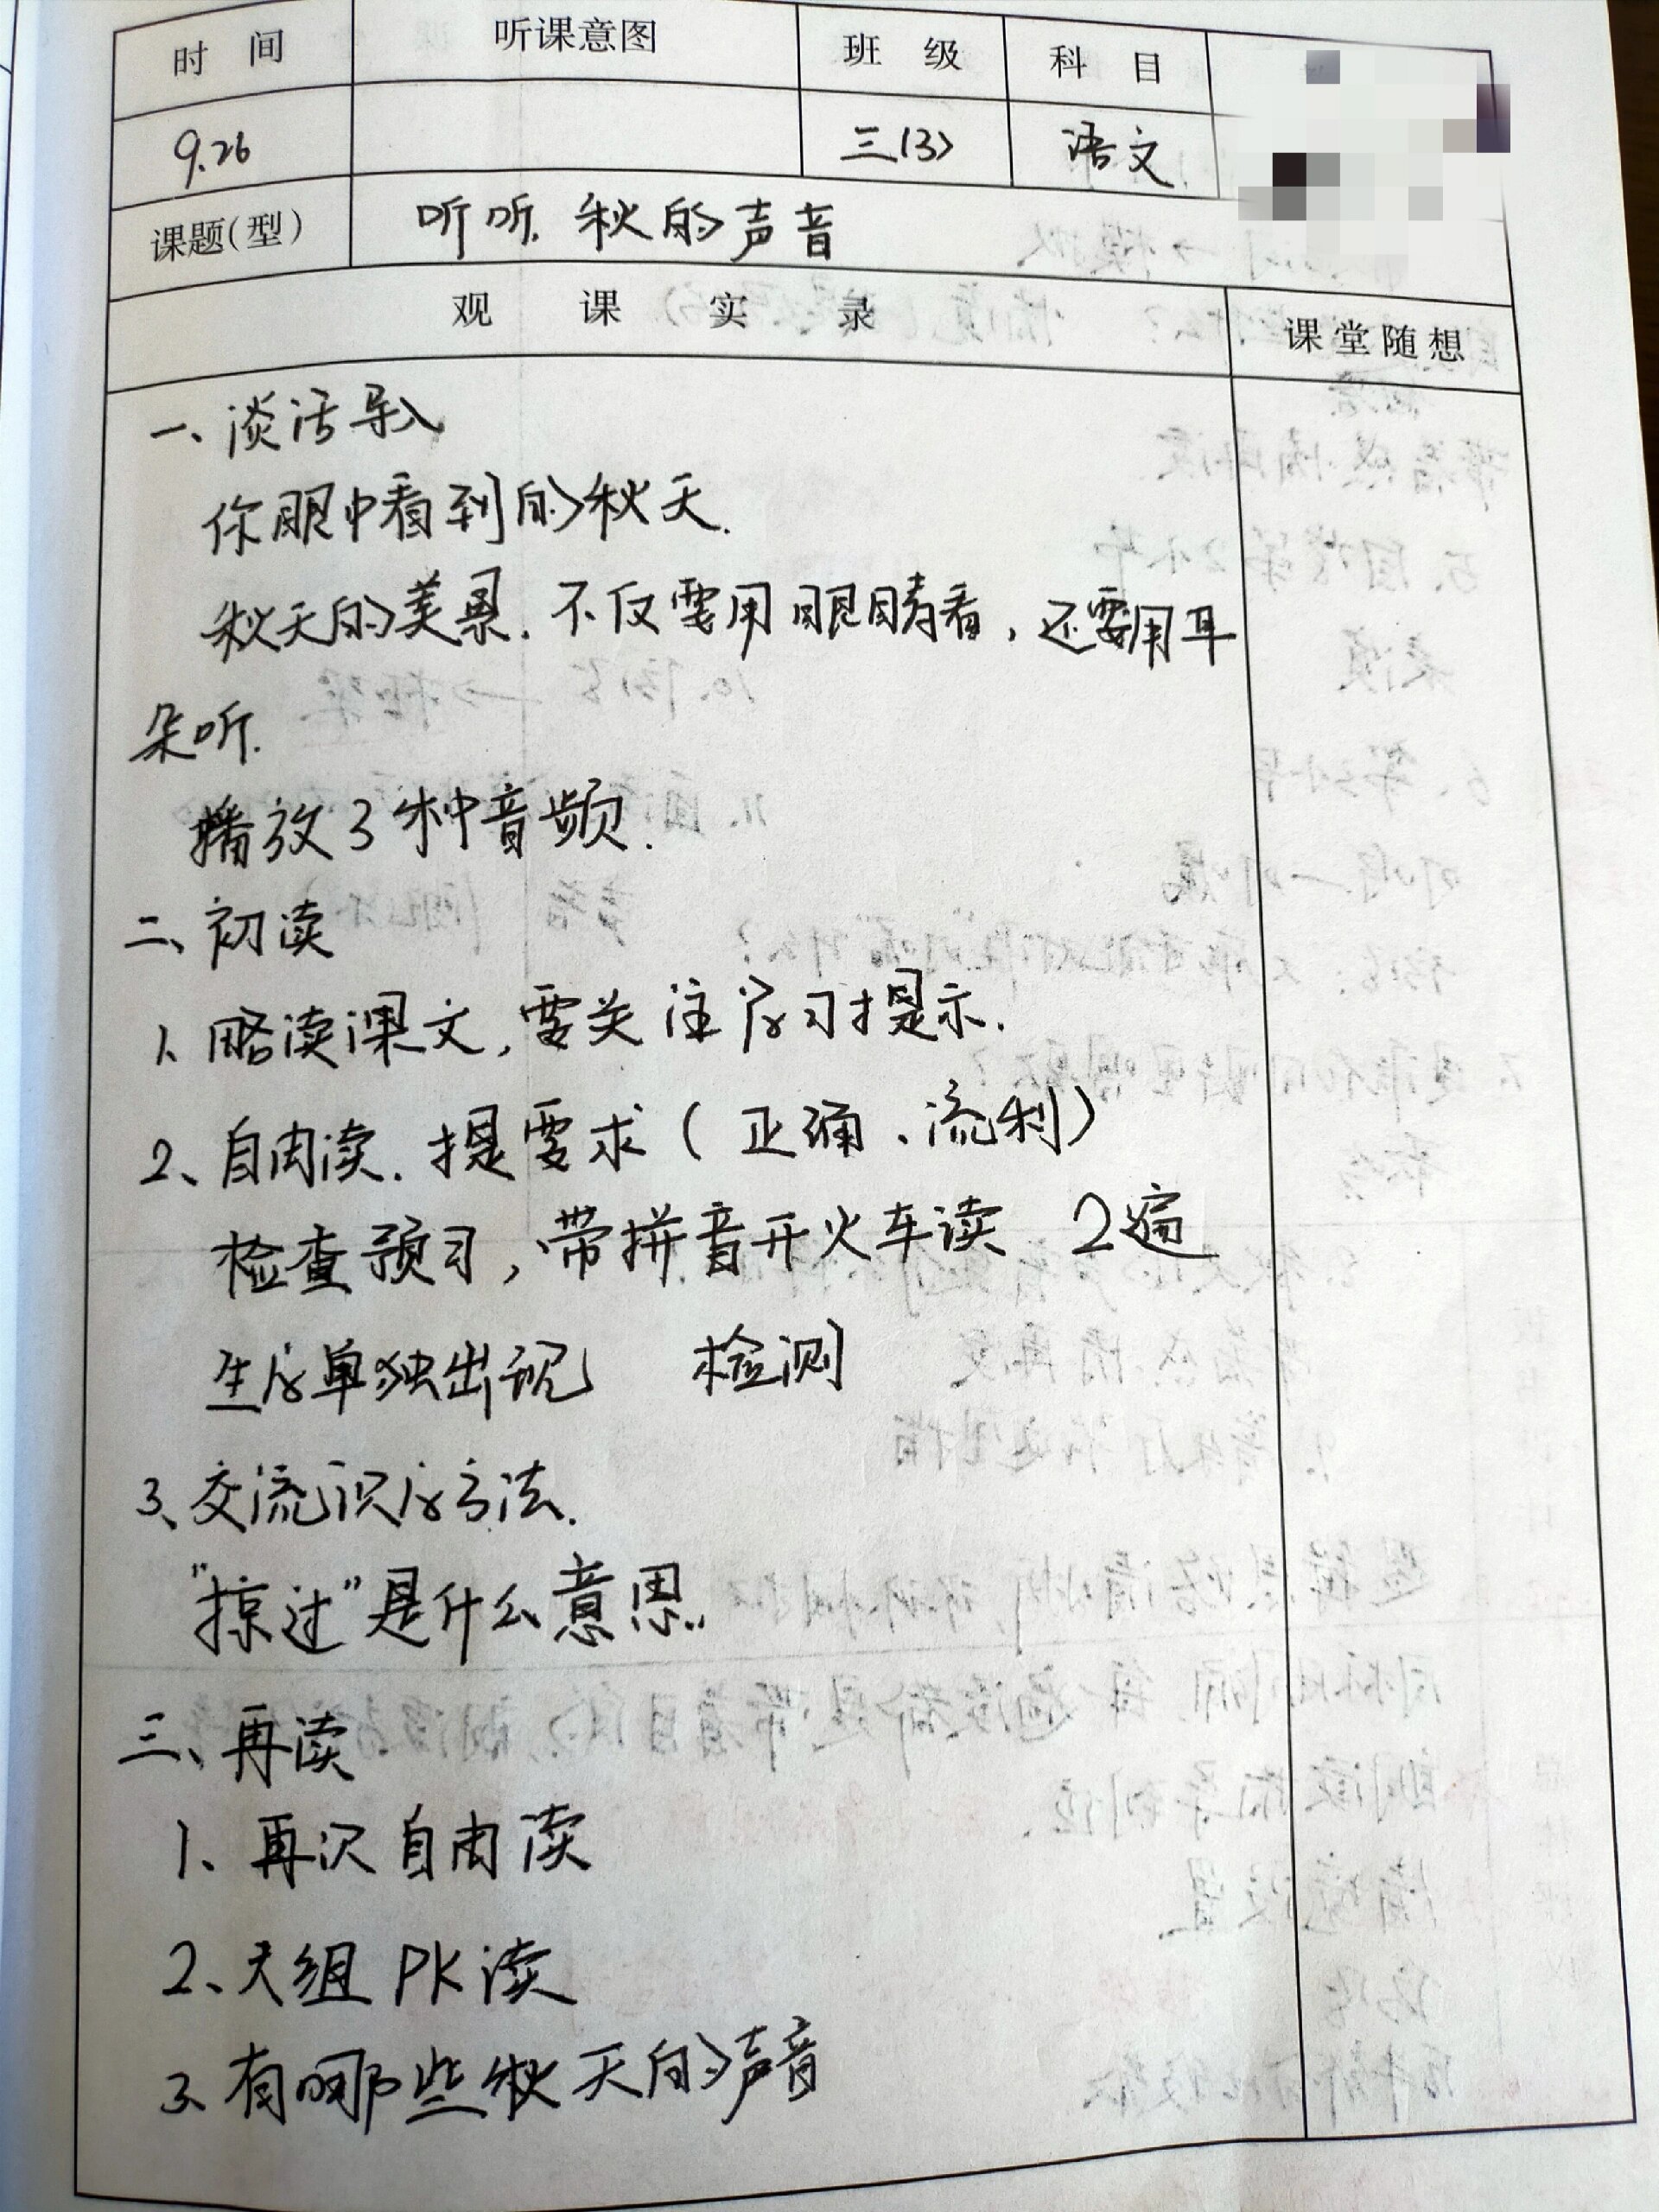 时 间 听课意图 班 级 科 目
9.26 三(3) 语文
课题(型) 听听,秋的声音
观 课 实 录 课堂随想
一、谈话导入
你眼中看到的秋天.
秋天的美景,不仅要用眼睛看,还要用耳
朵听.
播放3种音频.
二、初读
1、略读课文,要关注学习提示.
2、自由读.提要求(正确、流利)
检查预习,带拼音开火车读 2遍
生字单独出现 检测
3、交流识字方法.
"掠过"是什么意思.
三、再读
1、再次自由读
2、大组PK读
3、有哪些秋天的声音